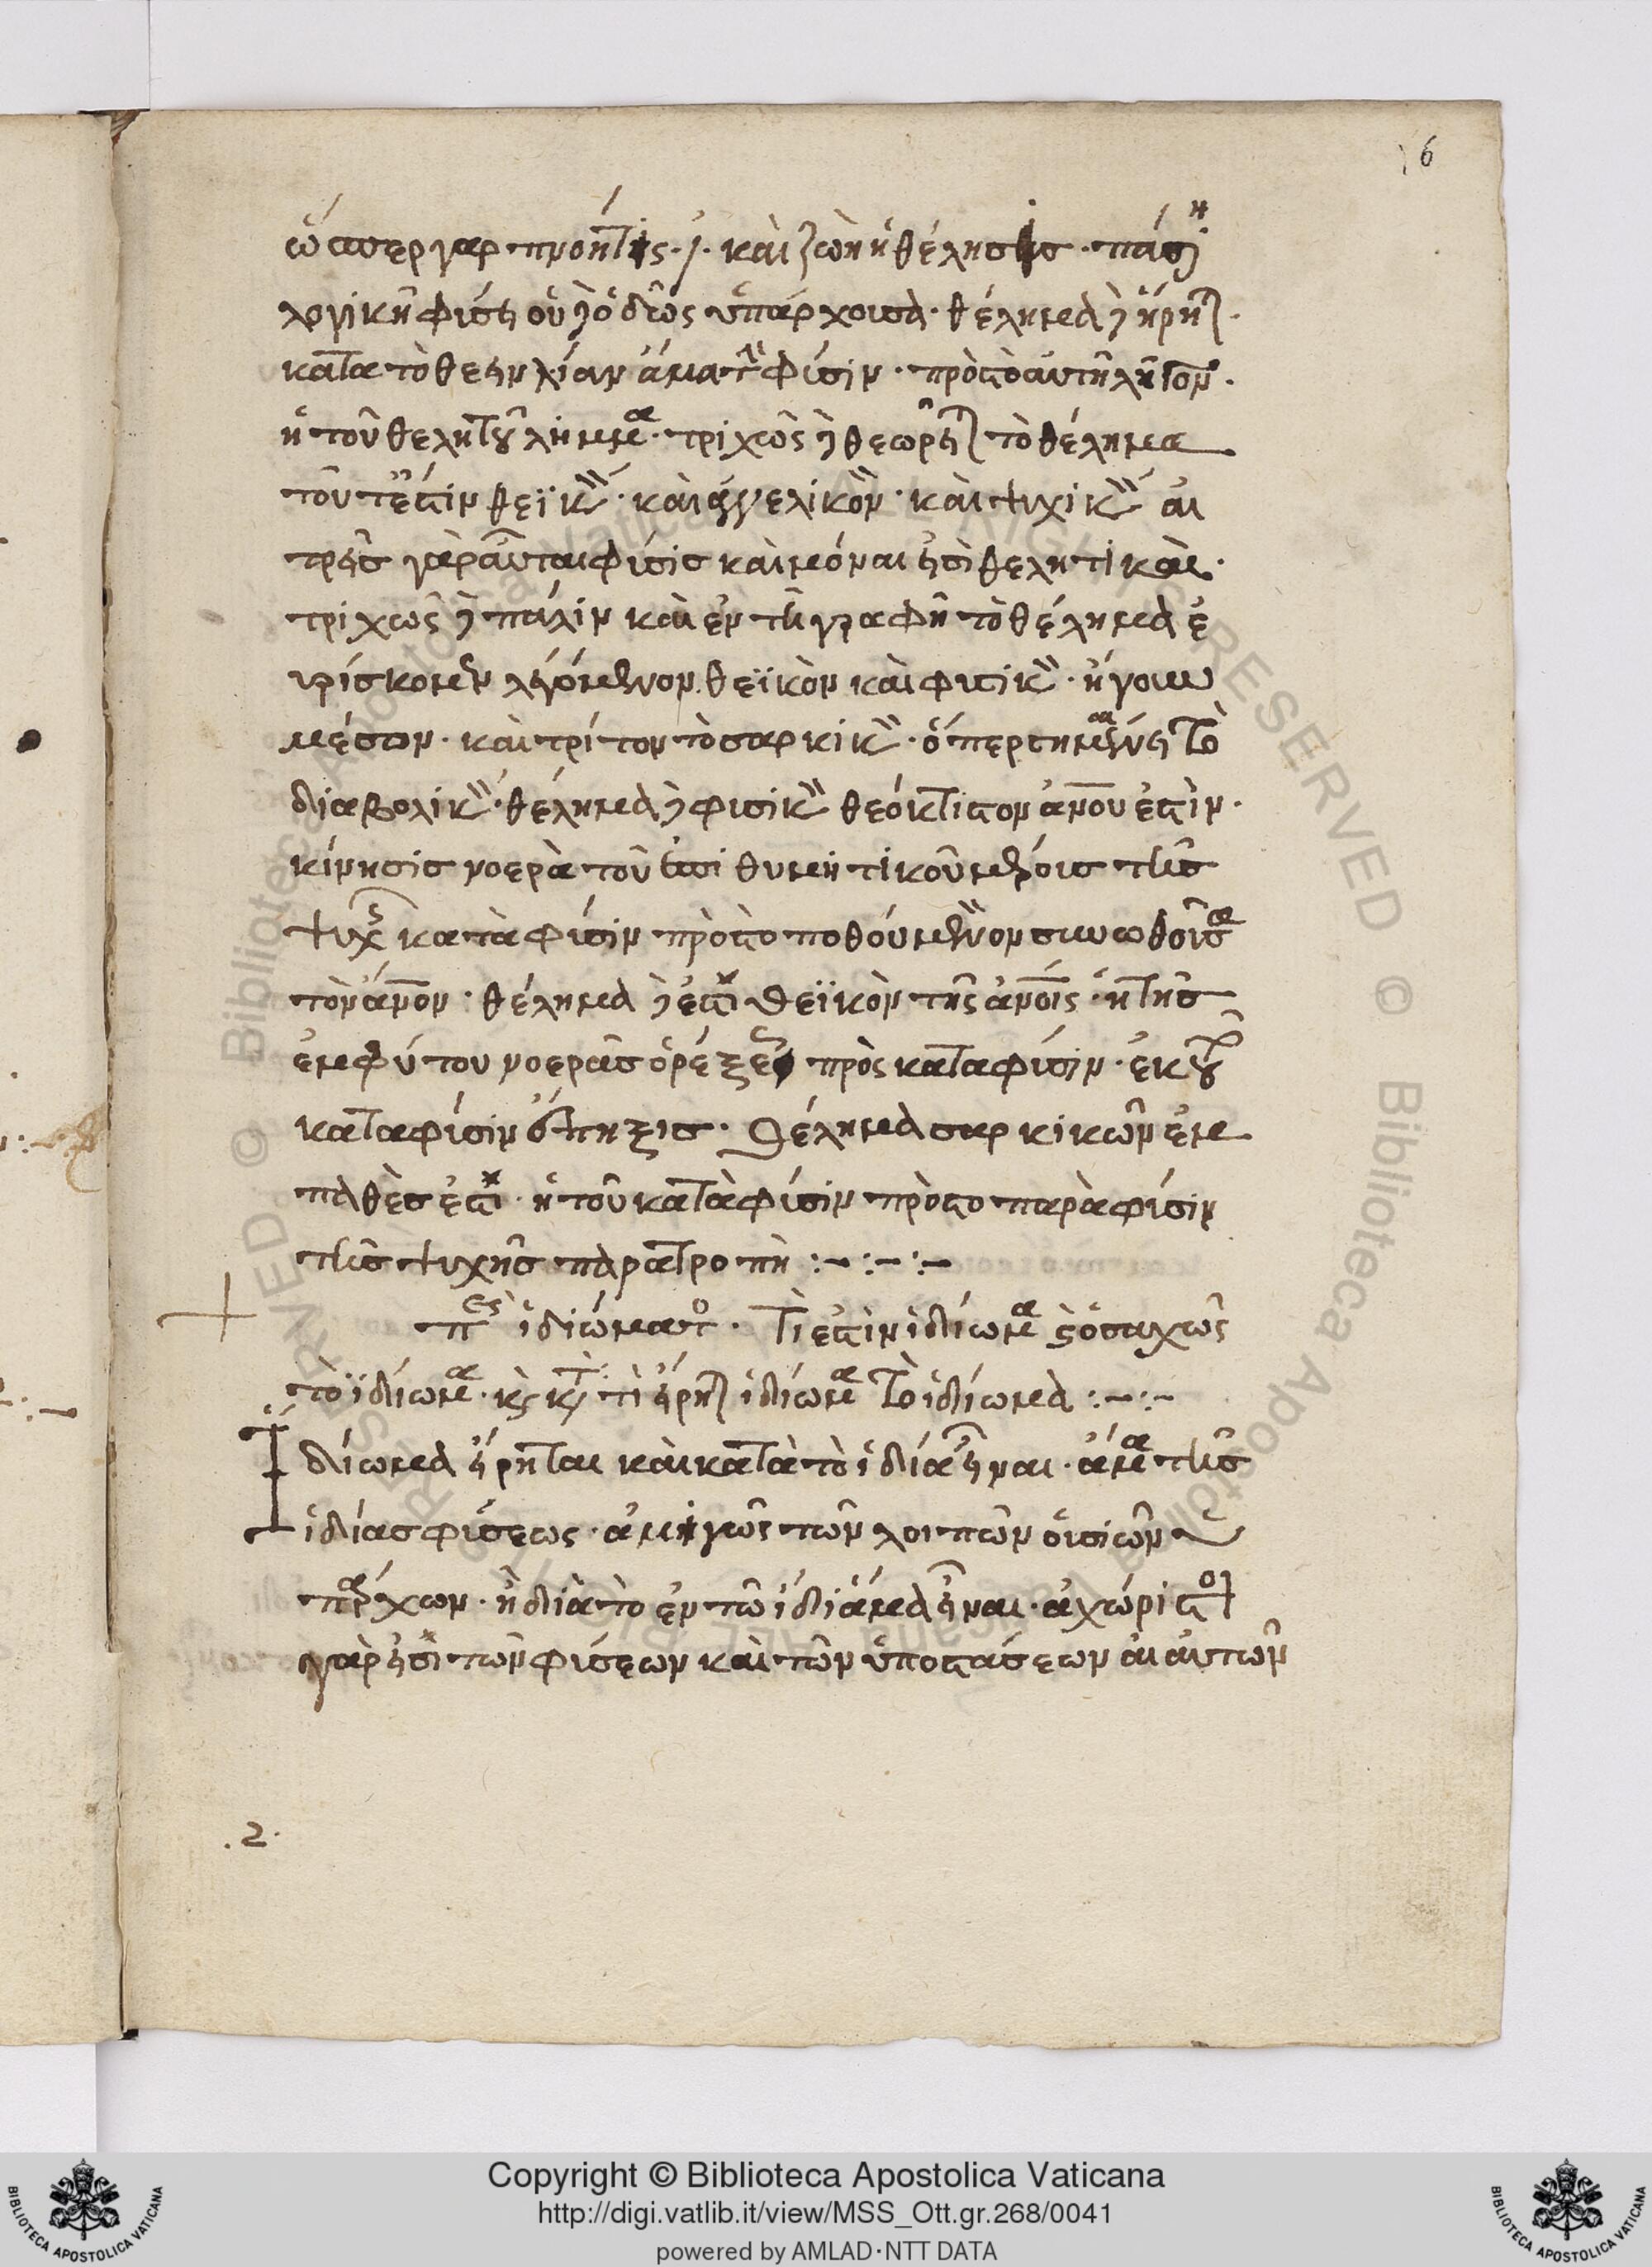 6
ὥσπερ γὰρ προητις. καὶ ζωὴ ἡ θέλησις. πάση
λογικῆ φύσει οὐσιοδῶς ὑπάρχουσα. θέλημα δὲ ἤρηται.
κατὰ τὸ θέειν λίαν ἅμα τὴν φύσιν. πρὸς τὸ αὐτῆ ληστὸν.
ἢ τοῦ θελητοῦ λήμμα. τριχῶς δὲ θεωρεῖται τὸ θέλημα
τοῦτ' ἔστιν θεϊκὸν. καὶ ἀγγελικὸν. καὶ ψυχικὸν αἱ
τρεῖς γὰρ αὗται φύσις καὶ μόναι εἰσὶ θελητικαὶ.
τριχῶς δὲ πάλιν καὶ ἐν τῆ γραφῆ τὸ θέλημα ἐ
υρίσκομεν λεγόμενον. θεϊκὸν καὶ φυσικὸν. ἤγουν
μέσων. καὶ τρίτον τὸ σαρκικὸν. ὅπερ σημαίνει τὸ
διαβολικὸν. θέλημα δὲ φυσικὸν θεόκτιστον ἀνου ἐστὶν.
κίνησις νοερὰ τοῦ ἐπιθυμητικοῦ μέρους τῆς
ψυχῆς κατὰ φύσιν πρὸς τὸ ποθούμενον συνωθοῦσα
τὸν ἄνον. θέλημα δὲ ἐστὶ θεϊκὸν τῆς ἀνοις. ἢ τῆς
ἐμφύτου νοερᾶς ὀρέξεως πρὸς κατὰ φύσιν. ἐκ τοῦ
κατὰ φύσιν ἔκπηξις. θέλημα σαρκικῶν ἐμ
παθὲς ἐστὶ. ἢ τοῦ κατὰ φύσιν πρὸς τὸ παρὰ φύσιν
τῆς ψυχῆς παρατροπὴ :-:-:-
περὶ ἰδιώματος. Τί ἐστιν ἰδίωμα καὶ ὁσαχῶς
τὸ ἰδίωμα. καὶ κατὰ τὶ εἴρηται ἰδίωμα τὸ ἰδίωμα :-:-
Ἰδίωμα εἴρηται καὶ κατὰ τὸ ἰδία εἶναι. ἅμα τῆς
ἰδίας φύσεως. ἀμιγῶς τῶν λοιπῶν οὐσιῶν ὑ
πάρχων. ἢ διὰ τὸ ἐν τῶ ἰδίω ἅμα εἶναι. ἀχώριστοι
γάρ εἰσι τῶν φύσεων καὶ τῶν ὑποστάσεων αἱ αὐτῶν
.2.
Copyright © Biblioteca Apostolica Vaticana
http://digi.vatlib.it/view/MSS_Ott.gr.268/0041
powered by AMLAD·NTT DATA